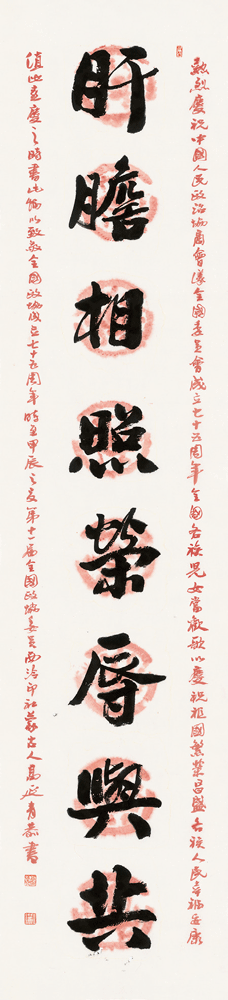 熱烈慶祝中國人民政治協商會議全國委員會成立七十五周年全國各族兒女當歡歌以慶祝祖國繁榮昌盛各族人民幸福安康
肝膽相照榮辱與共
值此喜慶之時書此幅以致敬全國政協成立七十五周年時在甲辰之夏第十一屆全國政協委員西泠印社蒙古人高延青恭書